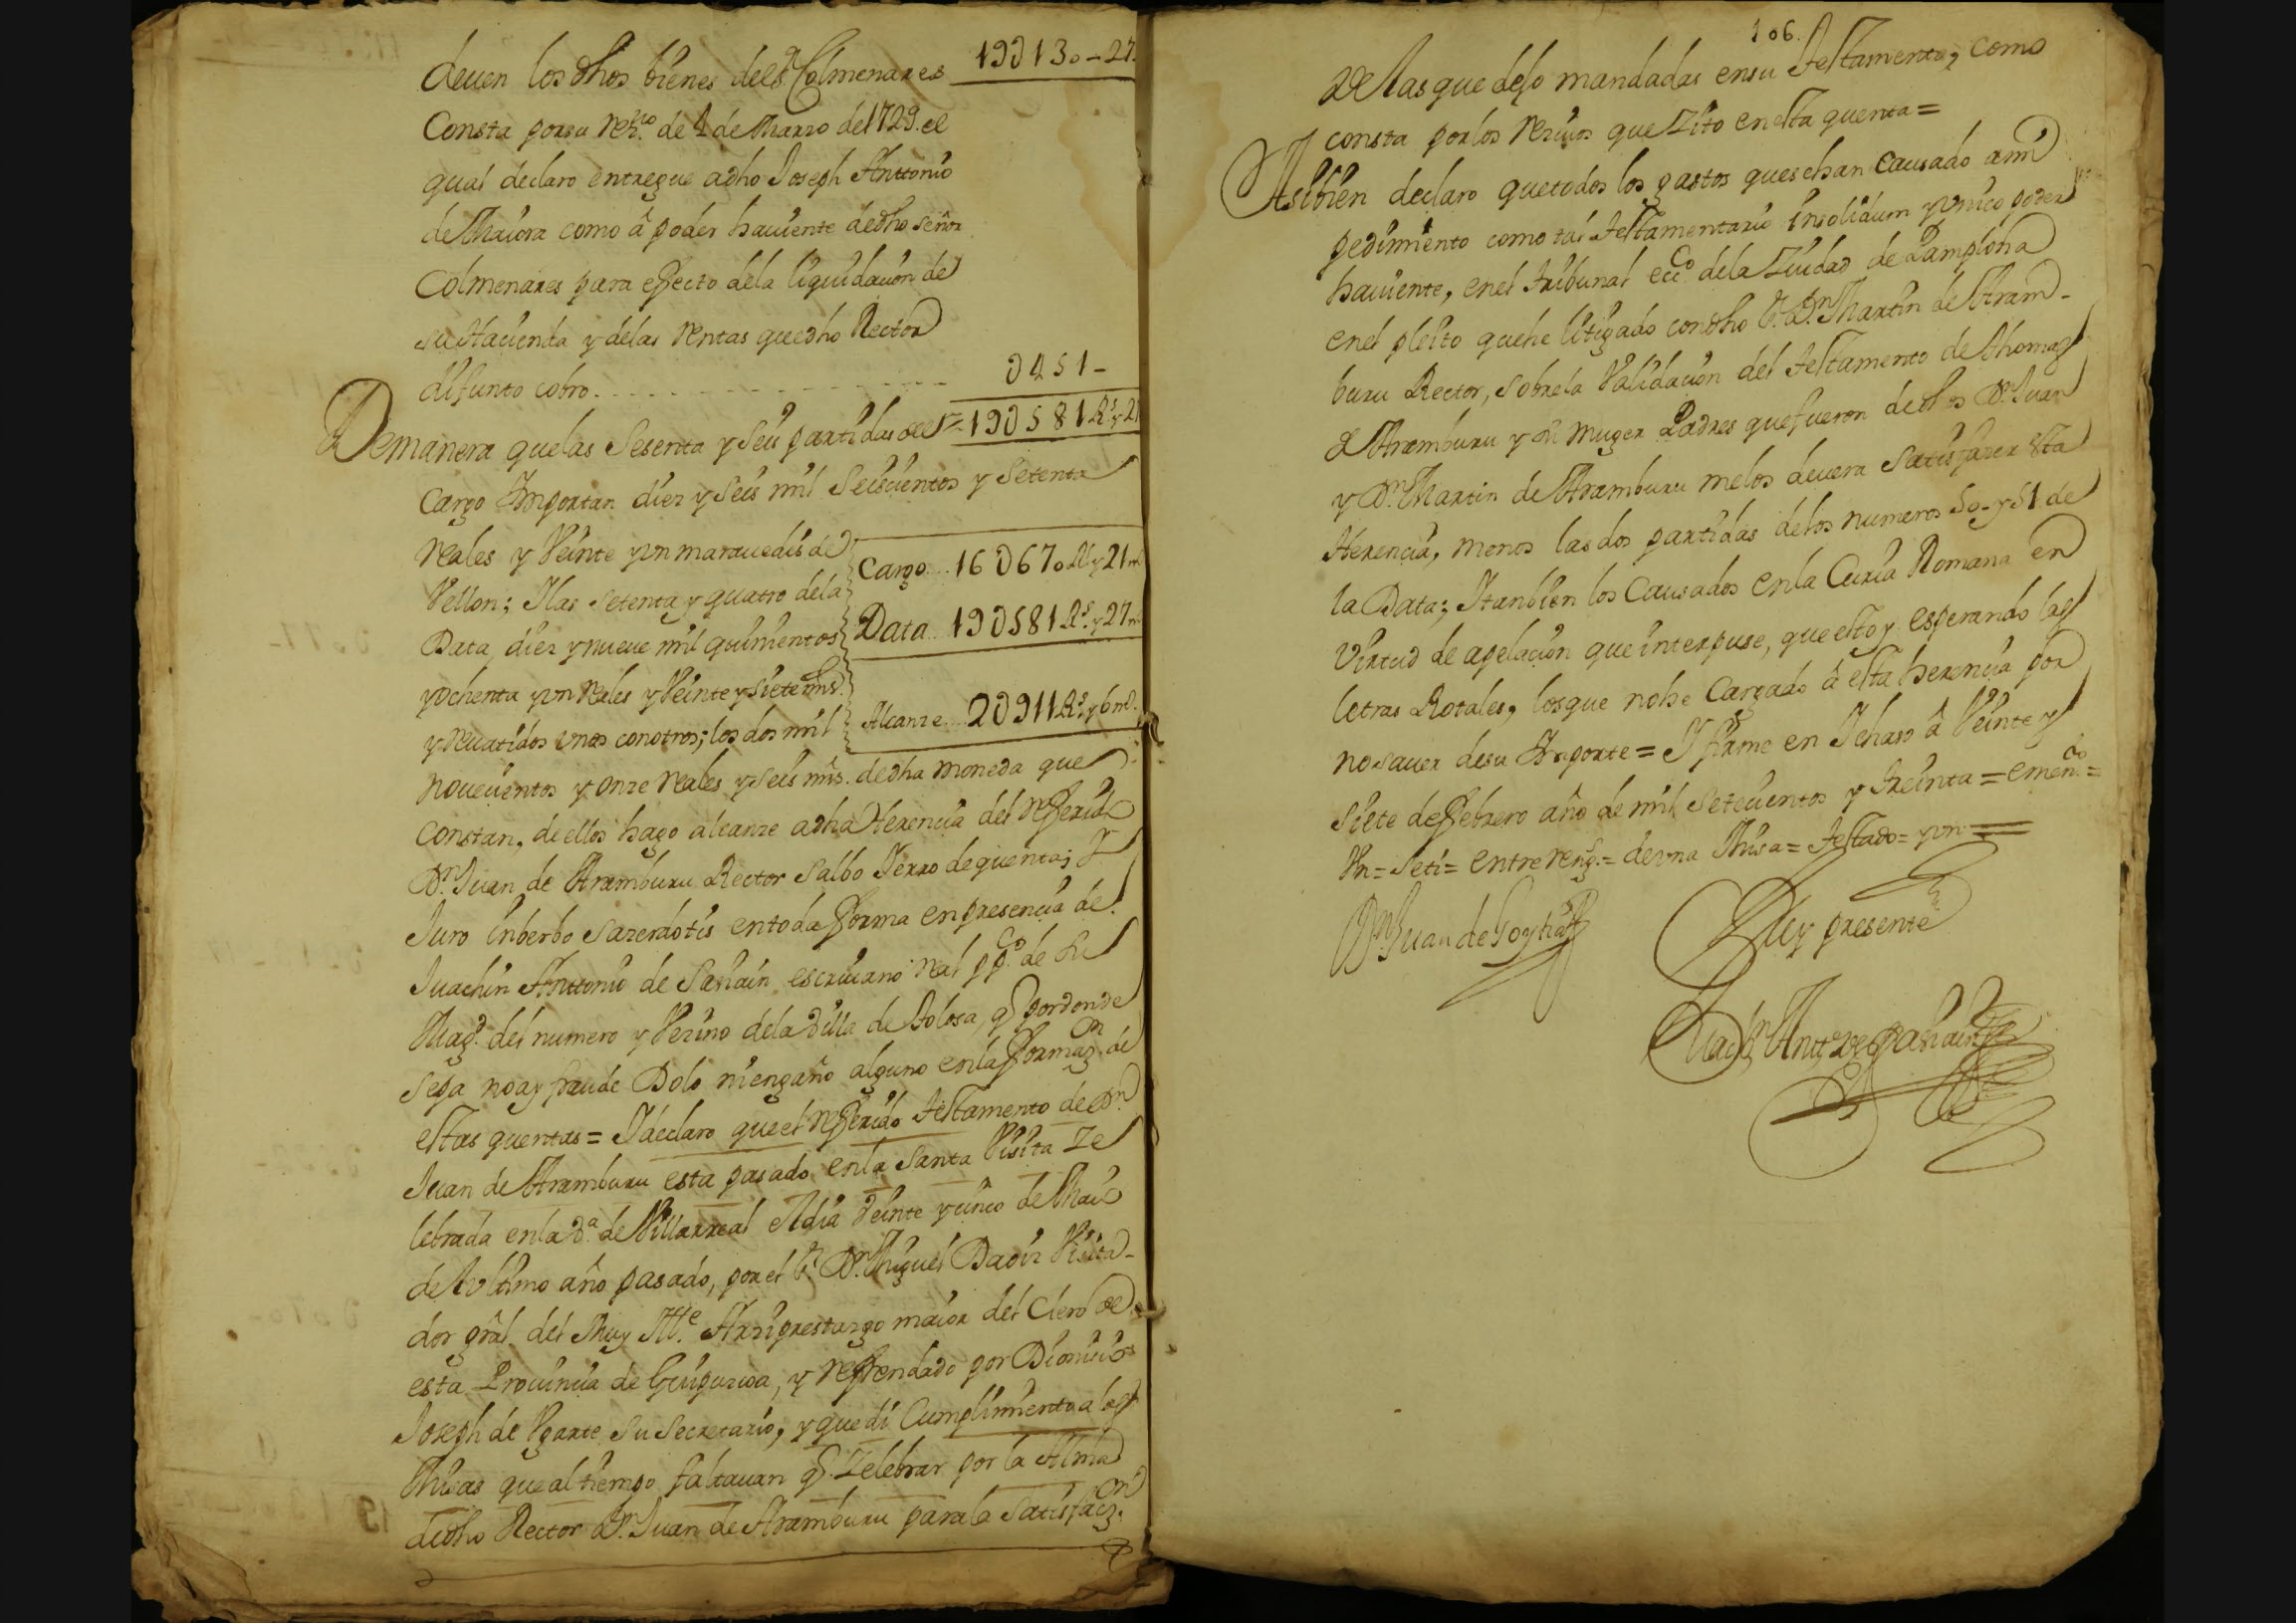 deuen los dhos bienes del S.r Colmenares 19U130-27
Consta por su rez.uo de 4 de Marzo del 1729. el
qual declaro entregue a dho Joseph Anttonio
de Maiora como â poder hauiente de dho señor
Colmenares para effecto dela liquidacion de
su Hacienda y delas rentas que dho Rector
difunto cobro. U451-
De manera que las Sesenta y Seis partidas del 19U581 R.s y 27
Cargo Importan diez y Seis mil Seiscientos y Setenta
reales y Veinte y vn marauedis de
Vellon; Ylas setenta y quatro dela
Data, diez y nueue mil quinientos
y ochenta y vn reales y Veinte y siete mrs.
y reuatidos vnos con otros; los dos mil
Cargo .. 16U670 R.s y 21 m.
Data .. 19U581 R.s y 27 m.
Alcanze .. 2U911 R.s y 6 m.s
nouecientos y onze reales y seis mrs. de dha moneda que
constan, de ellos hago alcanze a dha Herencia del referido
D.n Juan de Aramburu Rector salbo Yerro de quenta; Y
Juro in berbo sazerdotis en toda forma en presencia de
Juachin Anttonio de Sasiain escriuano real pp.co de su
Mag.d del numero y Vezino dela Villa de Tolosa, q.e por donde
sepa no ay fraude Dolo ni engaño alguno en la formaz.n de
estas quentas = Y declaro que el referido testamento de D.n
Juan de Aramburu esta pasado en la Santa Visita Ze
lebrada en la V.a de Villarreal el dia Veinte y cinco de Maio
del vltimo año pasado, por el S.r D.n Miguel Daoiz Visita-
dor grâl. del Muy Ill.e Arziprestazgo maior del Clero de
esta Prouincia de Guipuzcoa, y refrendado por Dionisio
Joseph de Vgarte su secretario, y que di Cumplimiento a las
Misas que al tiempo faltauan q.e Zelebrar por la Alma
de dho Rector D.n Juan de Aramburu para la satisfacz.n
106.
de las que dejo mandadas en su Testamento, como
consta por los reziuos que Zito en esta quenta =
Asibien declaro que todos los gastos que se han causado a mi
pedimiento como tal testamentario insolidum y vnico poder
hauiente, en el tribunal ecc.co de la Ziudad de Pamplona
en el pleito que he litigado con dho S.r D.n Martin de Aram-
buru Rector, sobre la Validacion del testamento de Thomas
de Aramburu y su muger Padres que fueron de dhos D.n Juan
y D.n Martin de Aramburu me los deuera satisfazer esta
Herencia, menos las dos partidas de los numeros 50 y 51 de
la Data; Y tanbien los Causados en la Curia Romana en
Virtud de apelacion que interpuse, que estoy esperando las
letras Rotales, los que no he Cargado â esta herencia por
no sauer de su Importe = Y firme en Ychaso â Veinte y
siete de Febrero año de mil setecientos y treinta = emen.do =
Vn = seti = entre reng.s = de vna Misa = testado = y vn =
D.n Juan de Goytia
Fuy presente
Juachin Antt.o de Sasiain